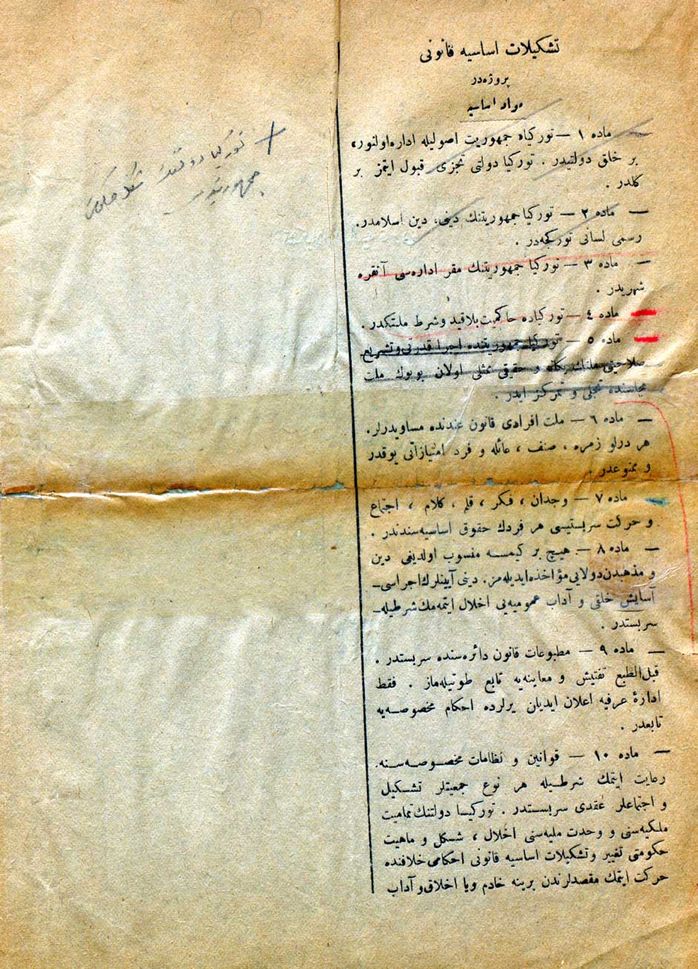 تشكیلات اساسیه قانونی
پروژه‌در
مواد اساسیه
— ماده ۱ — توركیا جمهوریت اصولیله اداره‌ اولنور،
بر خلق دولتیدر . توركیا دولتی تجزی قبول ایتمز بر
كلدر .
— ماده ۲ — توركیا جمهوریتنك دینی، دین اسلامدر.
رسمی لسانی توركجه‌در .
— ماده ۳ — توركیا جمهوریتنك مقر اداره‌سی آنقره
شهریدر .
— ماده ٤ — توركیاده حاكمیت بلاقید و شرط ملتكدر .
— ماده ٥ — توركیا جمهوریتنده اجرا قدرتی و تشریع
صلاحیتی ملتك یكانه و حقیقی ممثلی اولان بویوك ملت
مجلسنده تجلی و تمركز ایدر .
— ماده ٦ — ملت افرادی قانون عندنده مساویدرلر.
هر درلو زمره ، صنف ، عائله و فرد امتیازاتی یوقدر
و ممنوعدر .
— ماده ۷ — وجدان ، فكر ، قلم ، كلام ، اجتماع
و حركت سربستیسی هر فردك حقوق اساسیه‌سندندر .
— ماده ۸ — هیچ بر كیمسه منسوب اولدیغی دین
و مذهبدن دولایی مؤاخذه ایدیله‌مز. دینی آیینلرك اجراسی
آسایش خلقی و آداب عمومیه‌یی اخلال ایتمه‌مك شرطیله
سربستدر .
— ماده ۹ — مطبوعات قانون دائره‌سنده سربستدر .
قبل‌الطبع تفتیش و معاینه‌یه تابع طوتیله‌ماز . فقط
ادارۀ عرفیه اعلان ایدیلن یرلرده احكام مخصوصه‌یه
تابعدر .
— ماده ۱۰ — قوانین و نظامات مخصوصه‌سنه
رعایت ایتمك شرطیله هر نوع جمعیتلر تشكیل
و اجتماعلر عقدی سربستدر . توركیا دولتنك تمامیت
ملكیه‌سنی و وحدت ملیه‌سنی اخلال ، شكل و ماهیت
حكومتی تغییر و تشكیلات اساسیه قانونی احكامی خلافنده
حركت ایتمك مقصدلرندن برینه خادم ویا اخلاق و آداب
توركیا دولتنك شكل حكومتی
جمهوریتدر